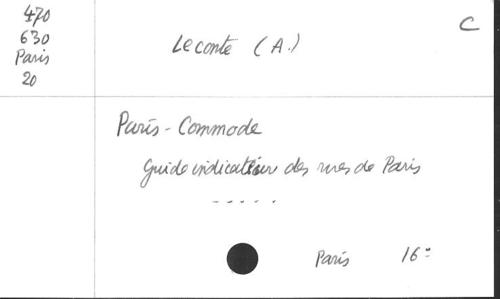 470
630
Paris
20
C
Leconte (A.)
Paris-Commode
Guide indicateur des rues de Paris
-----
Paris 16°